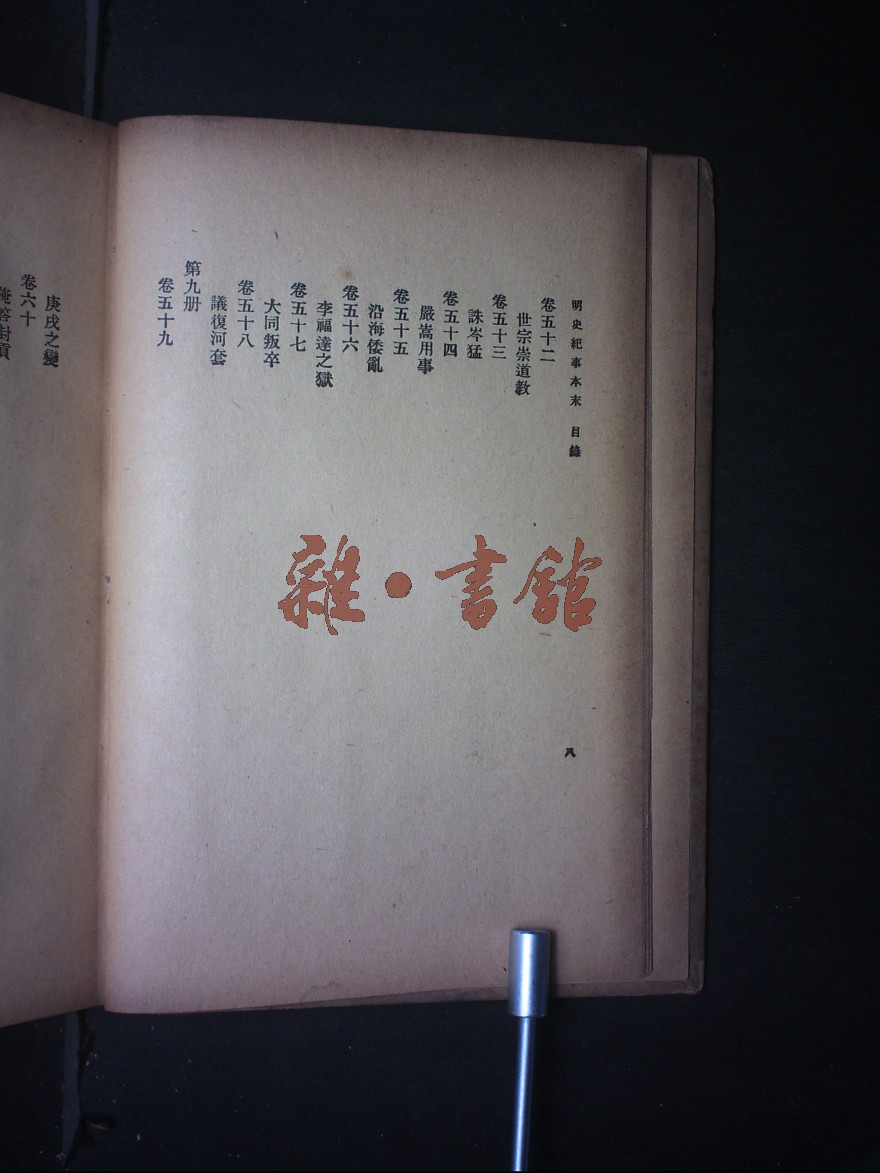 明史紀事本末 目錄
卷五十二
世宗崇道教
卷五十三
誅岑猛
卷五十四
嚴嵩用事
卷五十五
沿海倭亂
卷五十六
李福達之獄
卷五十七
大同叛卒
卷五十八
議復河套
第九册
卷五十九
八
庚戌之變
卷六十
俺答封貢
雜·書館